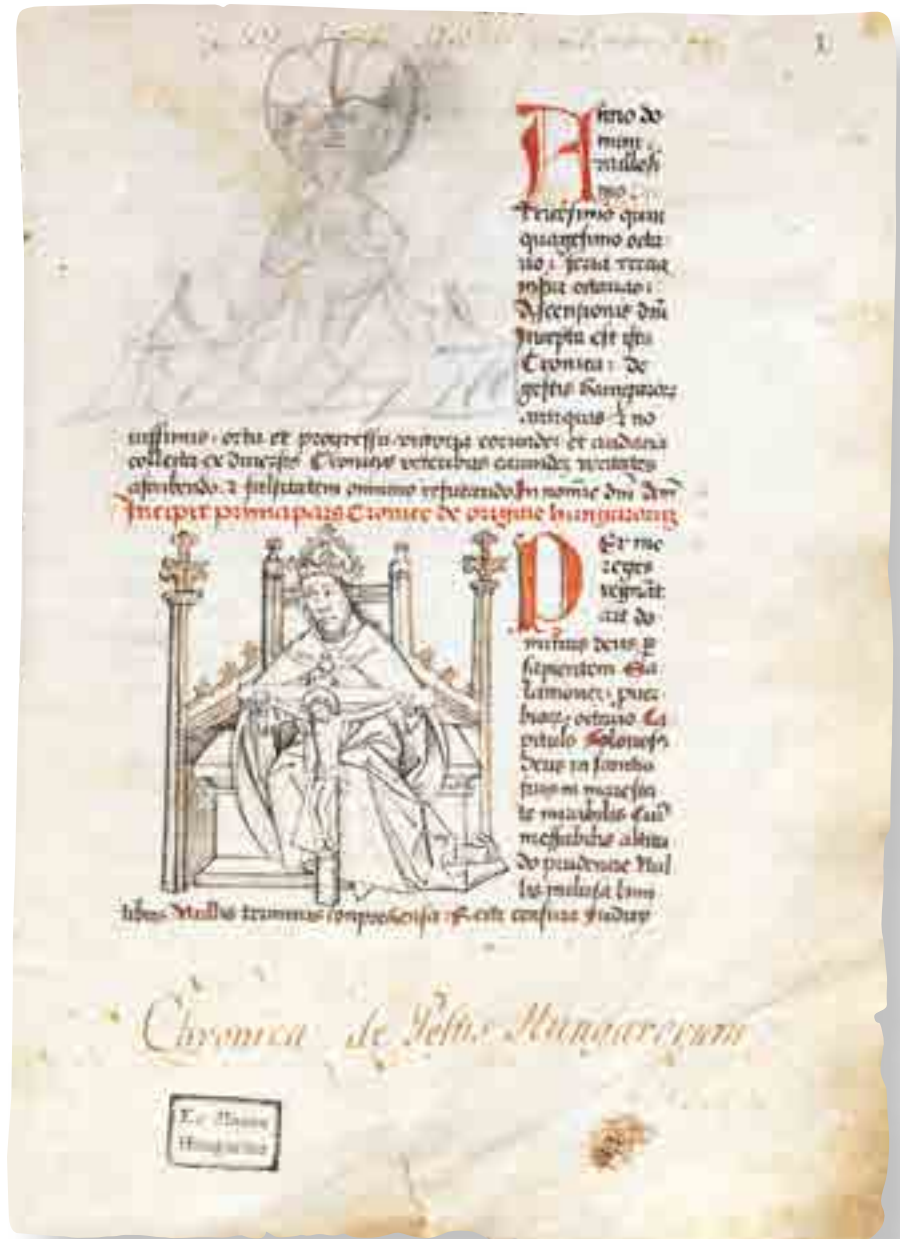 1
Anno do
mini
millesi
mo
Trecesimo quin
quagesimo octa
uo: feria tercia
infra octauas:
Ascensionis dni
Incepta est ista
Cronica: de
gestis hungaroꝝ
antiquis ⁊ no
uissimis: ortu et progressu: victoria eorundeꝫ et audacia
collecta ex diuersis Cronicis veteribus earundeꝫ veritates
ascribendo: ⁊ falsitatem omnino refutando In nomine dni Am
Incipit prima pars Cronice de origine hungaroꝝ
PEr me
reges
regnāt
ait do
minus deus ꝑ
sapientem Sa
lamoneꝫ: puer
octauo Ca
pitulo
deus in sanctis
suis in maiesta
te mirabilis Cuiꝰ
ineffabilis altitu
do prudencie Nul
lis inclusa limi
tibus Nullis terminis comprehensa: Recte censura Iudicij
Chronica de Gestis Hungarorum
Ex Museo
Hungarico